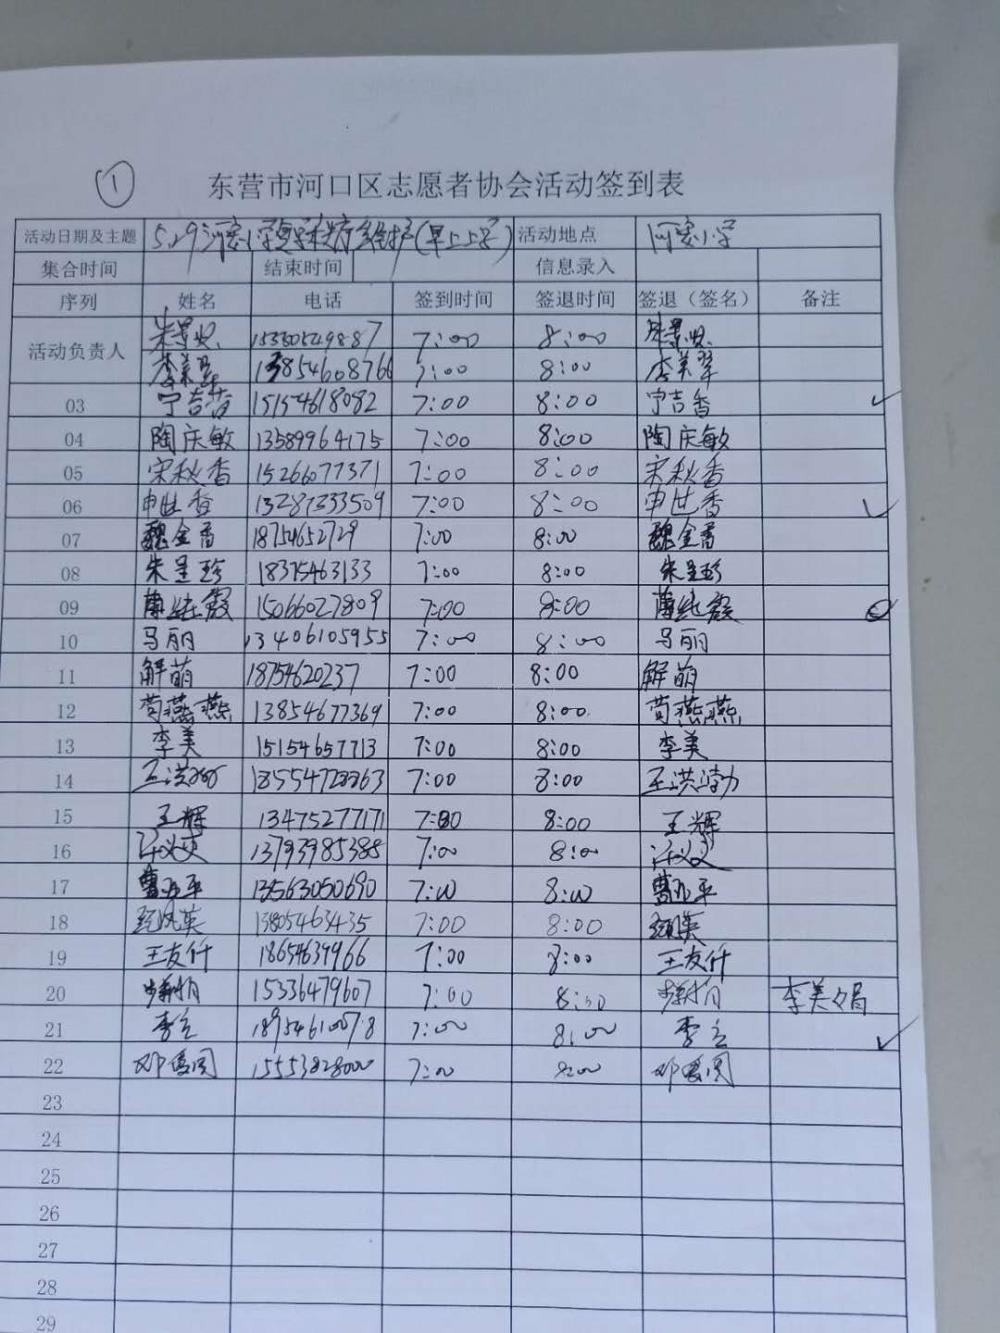 ① 东营市河口区志愿者协会活动签到表
活动日期及主题 5.29河安小学 维护(早上上学) 活动地点 河安小学
集合时间 结束时间 信息录入
序列 姓名 电话 签到时间 签退时间 签退（签名） 备注
活动负责人
15330549887 7:00 8:00
李美翠 13854608766 7:00 8:00 李美翠
03 宁吉香 15154618082 7:00 8:00 宁吉香 ✓
04 陶庆敏 13589964175 7:00 8:00 陶庆敏
05 宋秋香 15266077371 7:00 8:00 宋秋香
06 申世香 13287333509 7:00 8:00 申世香 ✓
07 魏金香 18754652729 7:00 8:00 魏金香
08 朱呈珍 18375463133 7:00 8:00 朱呈珍
09 15066027809 7:00 8:00
10 马丽 13406105955 7:00 8:00 马丽
11 解萌 18754620237 7:00 8:00 解萌
12 苟燕燕 13854677369 7:00 8:00 苟燕燕
13 李美 15154657713 7:00 8:00 李美
14 王洪渤 7:00 8:00 王洪渤
15 王辉 13475277171 7:00 8:00 王辉
16 13793985385 7:00 8:00
17 曹亚平 13563050690 7:00 8:00 曹亚平
18 13805463435 7:00 8:00
19 王友仟 18654639966 7:00 8:00 王友仟
20 15336479607 7:00 8:00 李美娟
21 李立 18954610078 7:00 8:00 李立 ✓
22 15553828000 7:00 8:00
23
24
25
26
27
28
29